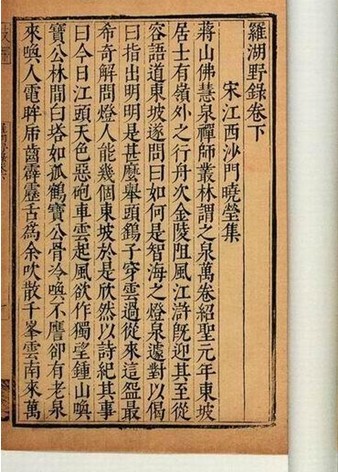 羅湖野錄卷下
宋江西沙門曉瑩集
蔣山佛慧泉禪師叢林謂之泉萬卷紹聖元年東坡
居士有嶺外之行舟次金陵阻風江滸旣迎其至從
容語道東坡遂問曰如何是智海之燈泉遽對以偈
曰指出明明是甚麽舉頭鷂子穿雲過從來這盌最
希奇解問燈人能幾個東坡於是欣然以詩紀其事
曰今日江頭天色惡砲車雲起風欲作獨望鍾山喚
寶公林間白塔如孤鶴寶公骨冷喚不譍卻有老泉
來喚人電眸虎齒霹靂舌爲余吹散千峯雲南來萬